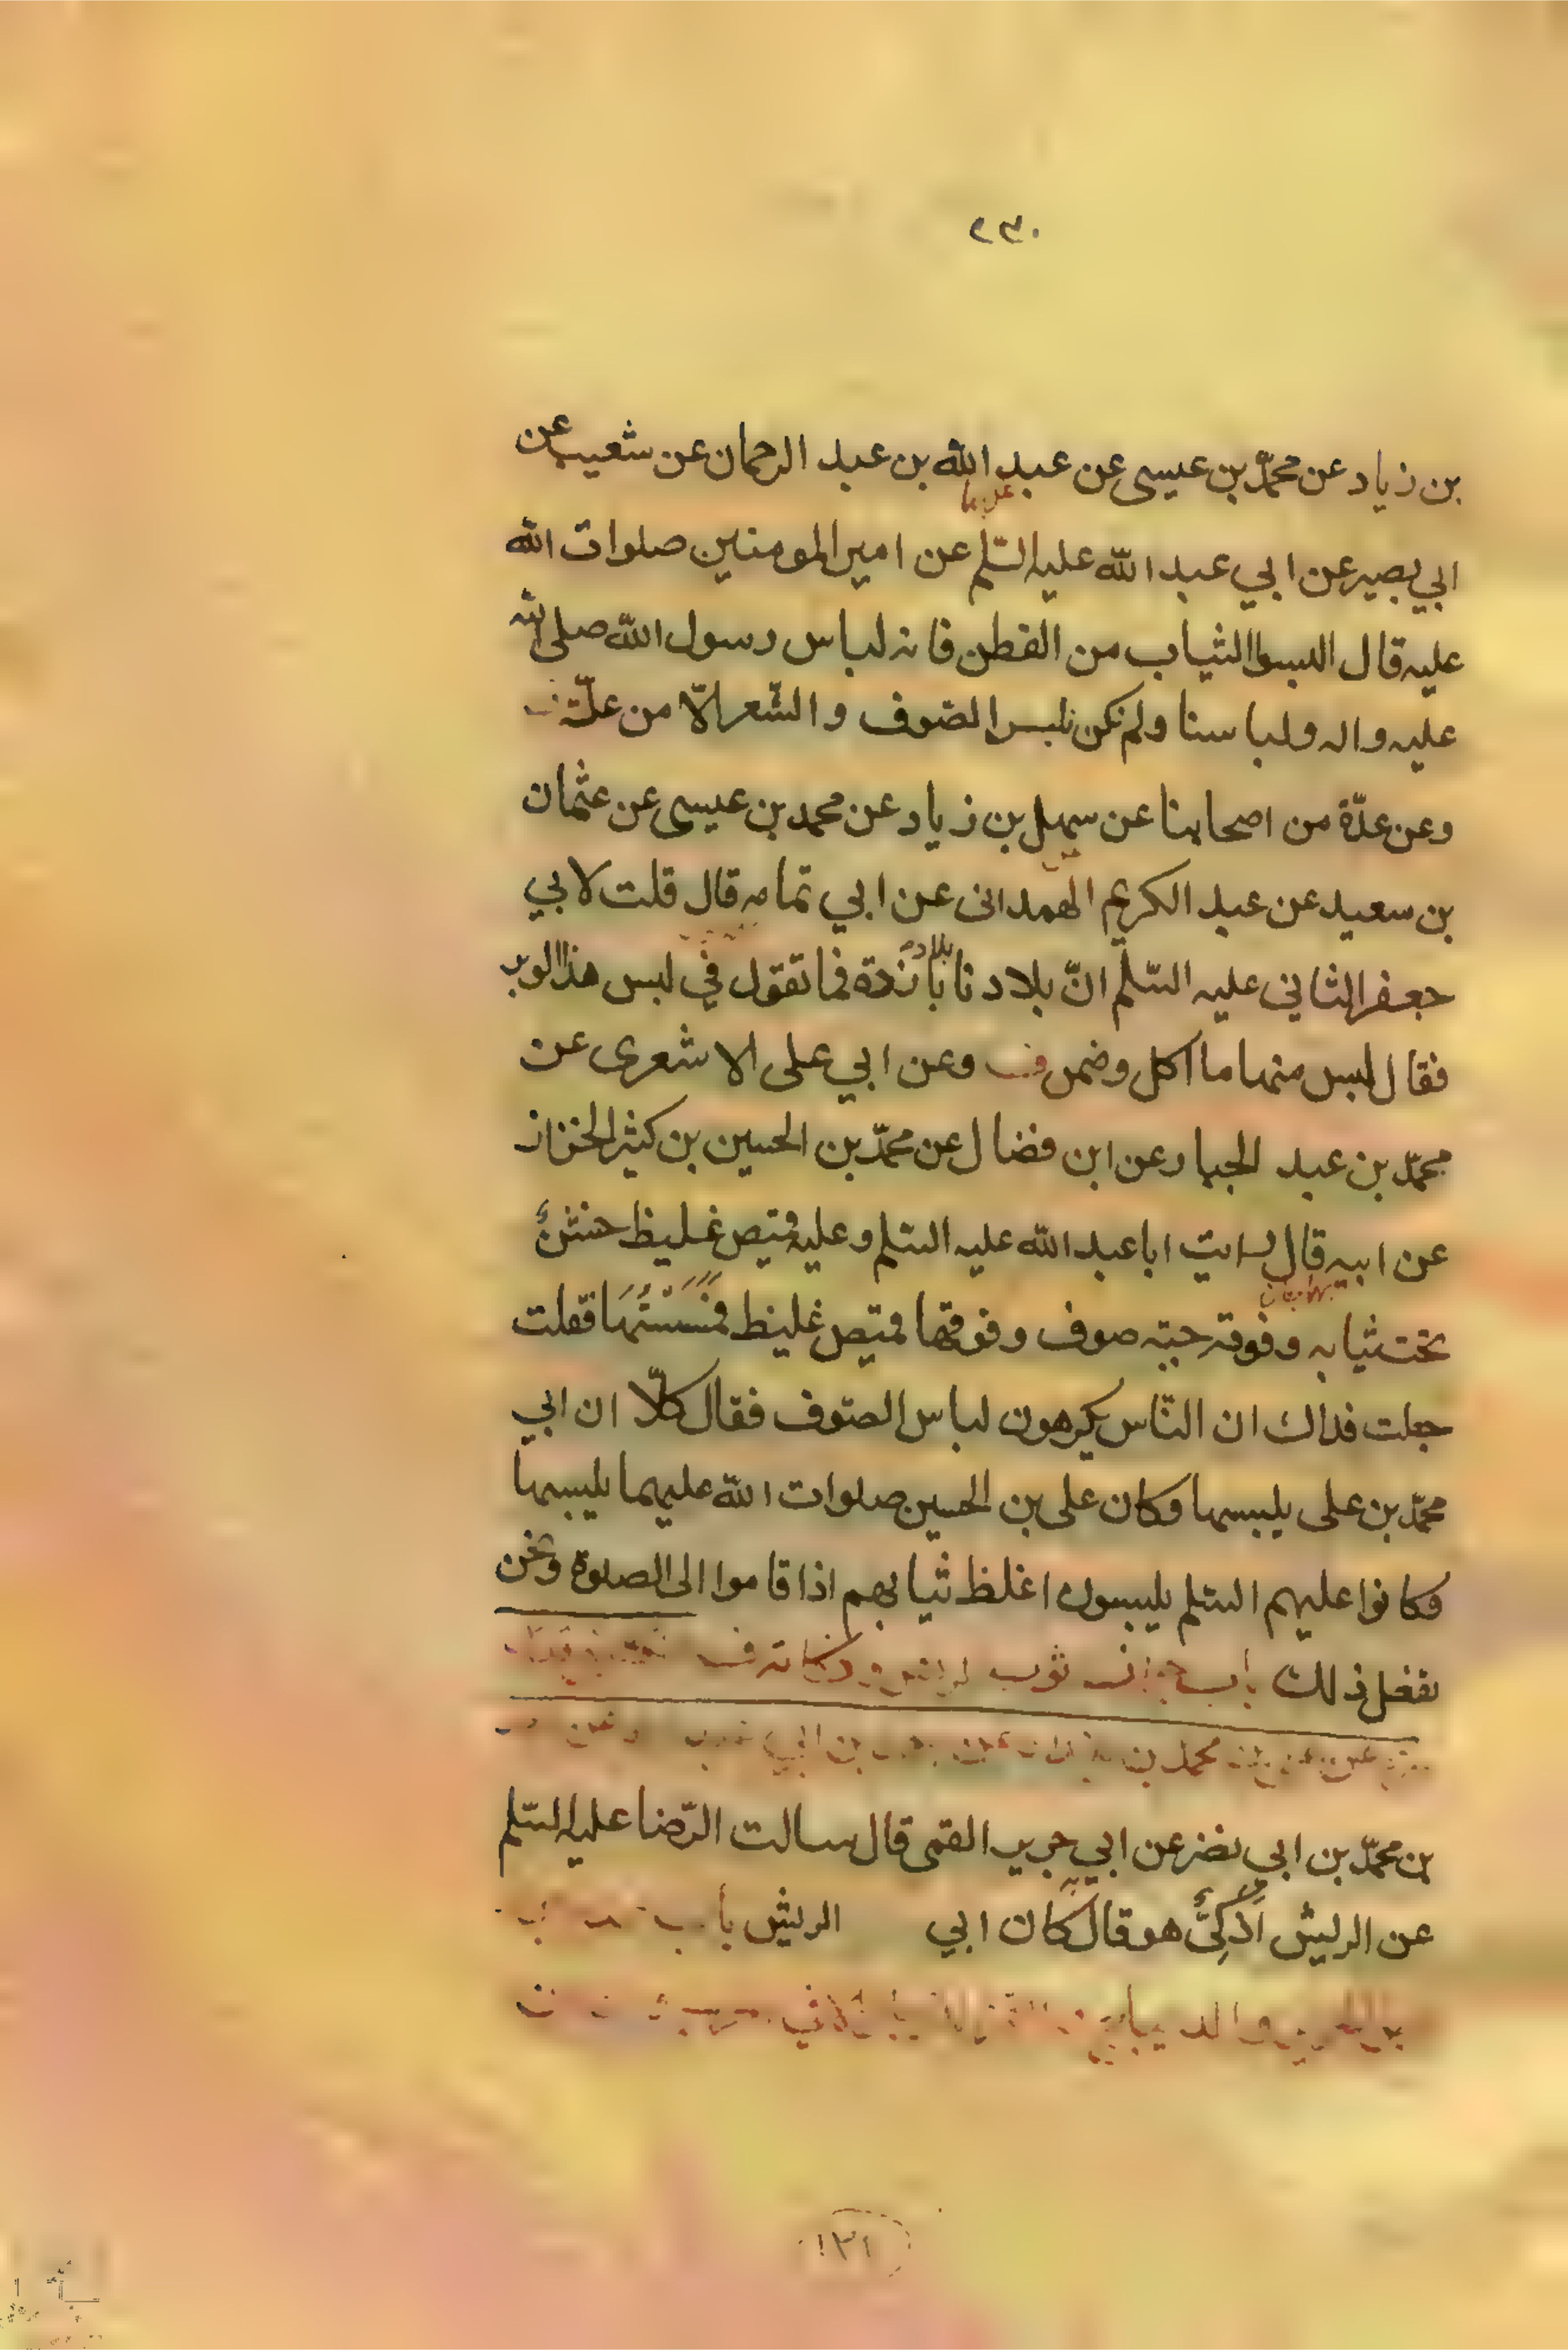 ٢٣٠
بن زياد عن محمّد بن عيسى عن عبد الله بن عبد الرحمان عن شعيب عن
ابي بصير عن ابي عبد الله عليه السّلم عن امير المومنين صلوات الله
عليه قال البسوا الثياب من القطن فانه لباس رسول الله صلى الله
عليه واله ولباسنا ولم نكن نلبس الصّوف والشّعر الّا من علّة
وعن عدّة من اصحابنا عن سهل بن زياد عن محمد بن عيسى عن عثمان
بن سعيد عن عبد الكريم الهمدانى عن ابي تمامه قال قلت لابي
جعفر الثاني عليه السّلم انّ بلادنا بلاد باردة فما تقول في لبس هذا الوبر
فقال لبس منها ما اكل وضمن وعن ابي على الاشعرى عن
محمّد بن عبد الجبار عن ابن فضال عن محمّد بن الحسين بن كثير الخزاز
عن ابيه قال رايت ابا عبد الله عليه السّلم وعليه قميص غليظ خشن
تحت ثيابه وفوقه جبّه صوف وفوقها قميص غليظ فمسستها فقلت
جعلت فداك ان النّاس يكرهون لباس الصّوف فقال كلّا ان ابي
محمّد بن على يلبسها وكان على بن الحسين صلوات الله عليهما يلبسها
وكانوا عليهم السّلم يلبسون اغلظ ثيابهم اذا قاموا الى الصلوة ونحن
نفعل ذلك باب ثوب
محمد بن بن ابي
بن محمّد بن ابي نصر عن ابي جرير القمى قال سالت الرّضا عليه السّلم
عن الريش أذكىّ هو قال كان ابي الريش باب
١٣١